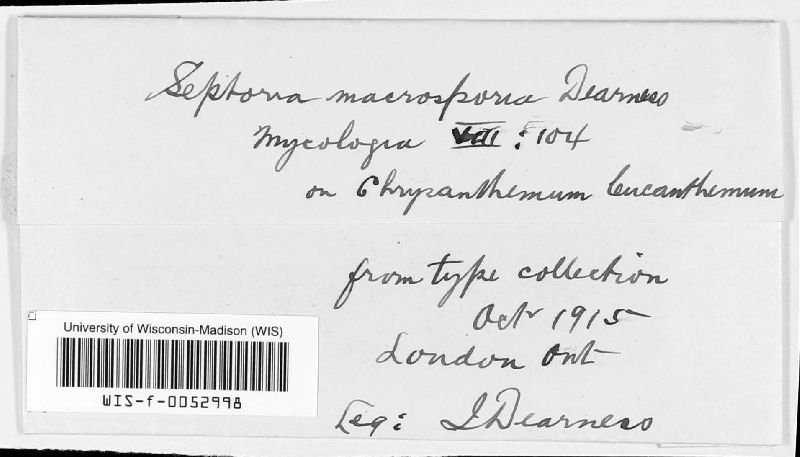 Septoria macrosporia Dearness
Mycologia VIII : 104
on Chrysanthemum leucanthemum
from type collection
Oct 1915
London Ont
Leg: J Dearness
University of Wisconsin-Madison (WIS)
WIS-f-0052998